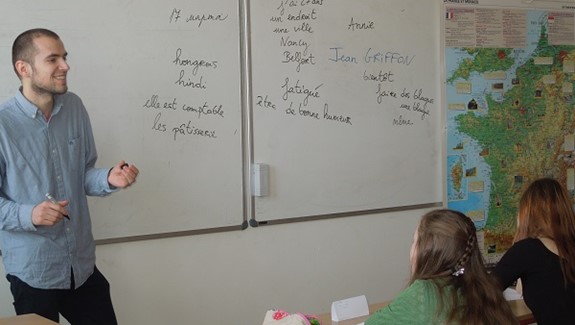 17 марта
hongrois
hindi
elle est comptable
les pâtisserie
j'ai 27 ans
un endroit
une ville
Nancy
Belfort
fatigué
être de bonne humeur
Annie
Jean GRIFFON
bientôt
faire des blagues
une blague
même